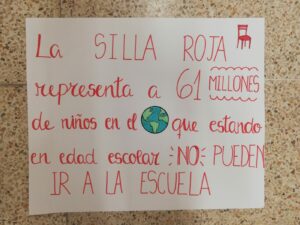 La SILLA ROJA
representa a 61 MILLONES
de niños en el que estando
en edad escolar NO PUEDEN
IR A LA ESCUELA